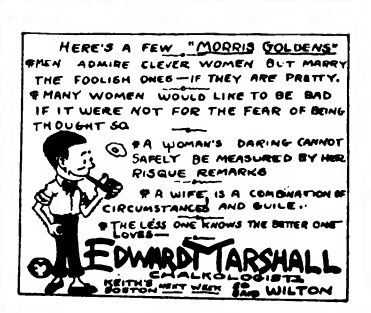 HERE'S A FEW "MORRIS GOLDENS"
MEN ADMIRE CLEVER WOMEN BUT MARRY
THE FOOLISH ONES—IF THEY ARE PRETTY.
MANY WOMEN WOULD LIKE TO BE BAD
IF IT WERE NOT FOR THE FEAR OF BEING
THOUGHT SO.
A WOMAN'S DARING CANNOT
SAFELY BE MEASURED BY HER
RISQUE REMARKS
A WIFE IS A COMBINATION OF
CIRCUMSTANCES AND GUILE.
THE LESS ONE KNOWS THE BETTER ONE
LOVES—
EDWARD MARSHALL
CHALKOLOGIST
KEITH'S BOSTON NEXT WEEK SO SAID WILTON